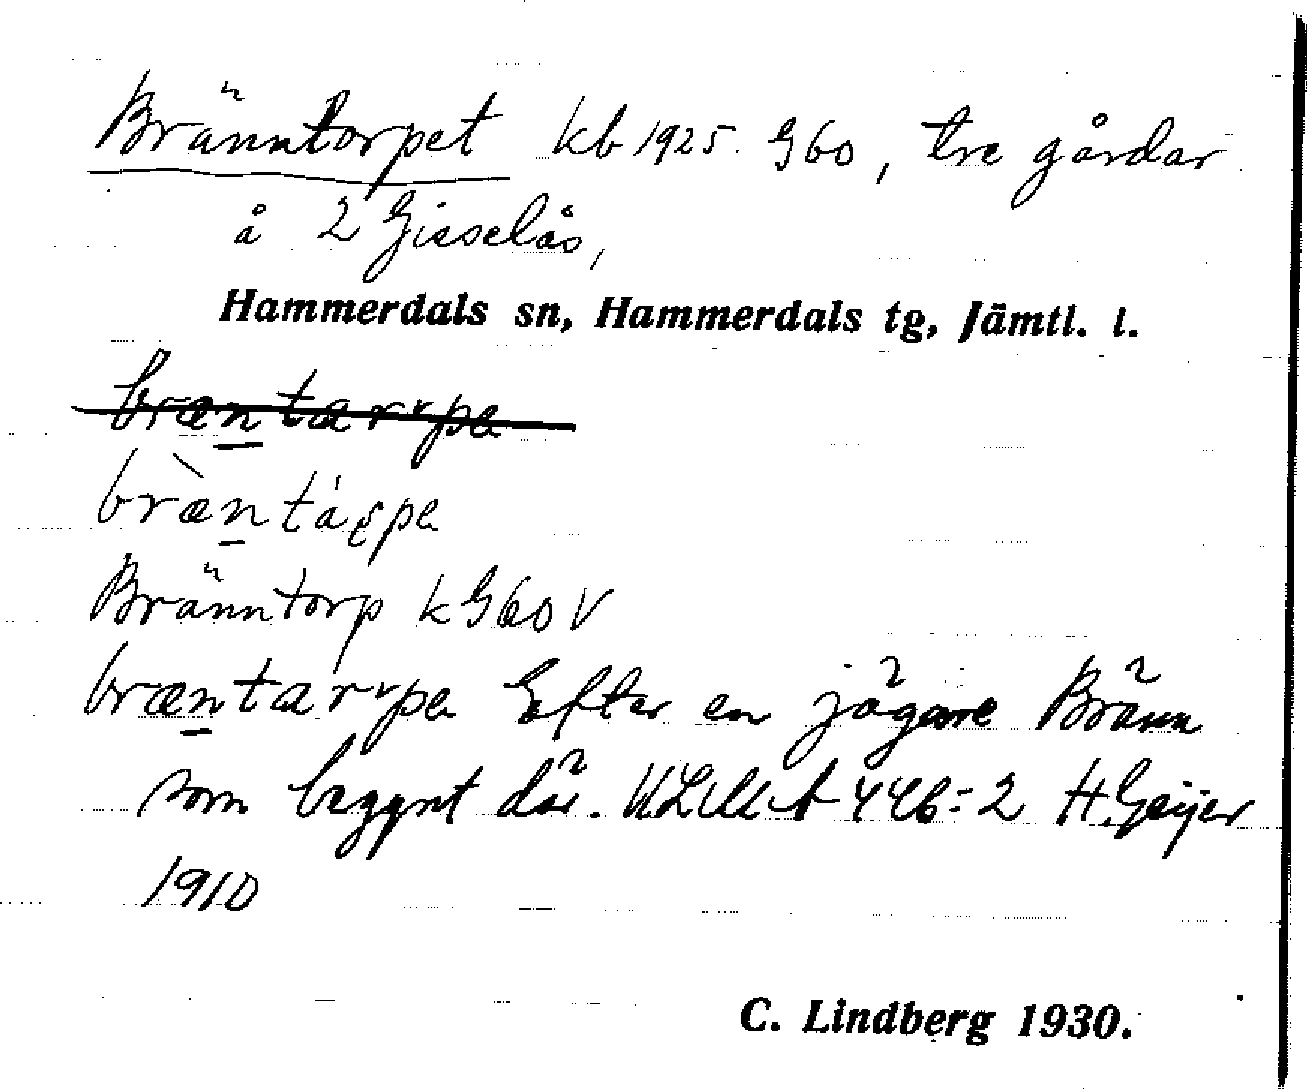 Bränntorpet kb 1925. G60, tre gårdar
å 2 Gisselås,
Hammerdals sn, Hammerdals tg, Jämtl. l.
bræntarpa
bræ̀ntárpa
Bränntorp k G60 V
bræntarpa Efter en jägare Bränn
som byggnt där. 446:2 H. Geijer
1910
C. Lindberg 1930.